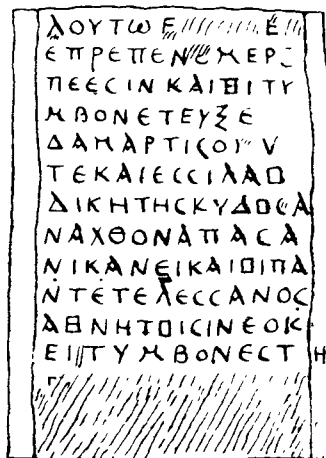 ΛΟΥΤΩΕ Ε
ΕΠΡΕΠΕΝ ΜΕΡ
ΠΕΕϹΙΝΚΑΙΘΙΤΥ
ΜΒΟΝΕΤΕΥΞΕ
ΔΑΜΑΡΤΙϹΟΥ
ΤΕΚΑΙΕϹϹΙΛΑΟ
ΔΙΚΗΤΗϹΚΥΔΟϹΑ
ΝΑΧΘΟΝΑΠΑϹΑ
ΝΙΚΑΝΕΙΚΑΙΟΙΠΑ
ΝΤΕΤΕΛΕϹϹΑΝΟϹ
ΑΘΝΗΤΟΙϹΙΝΕΟΚ
ΕΙ ΤΥΜΒΟΝΕϹΤΗ